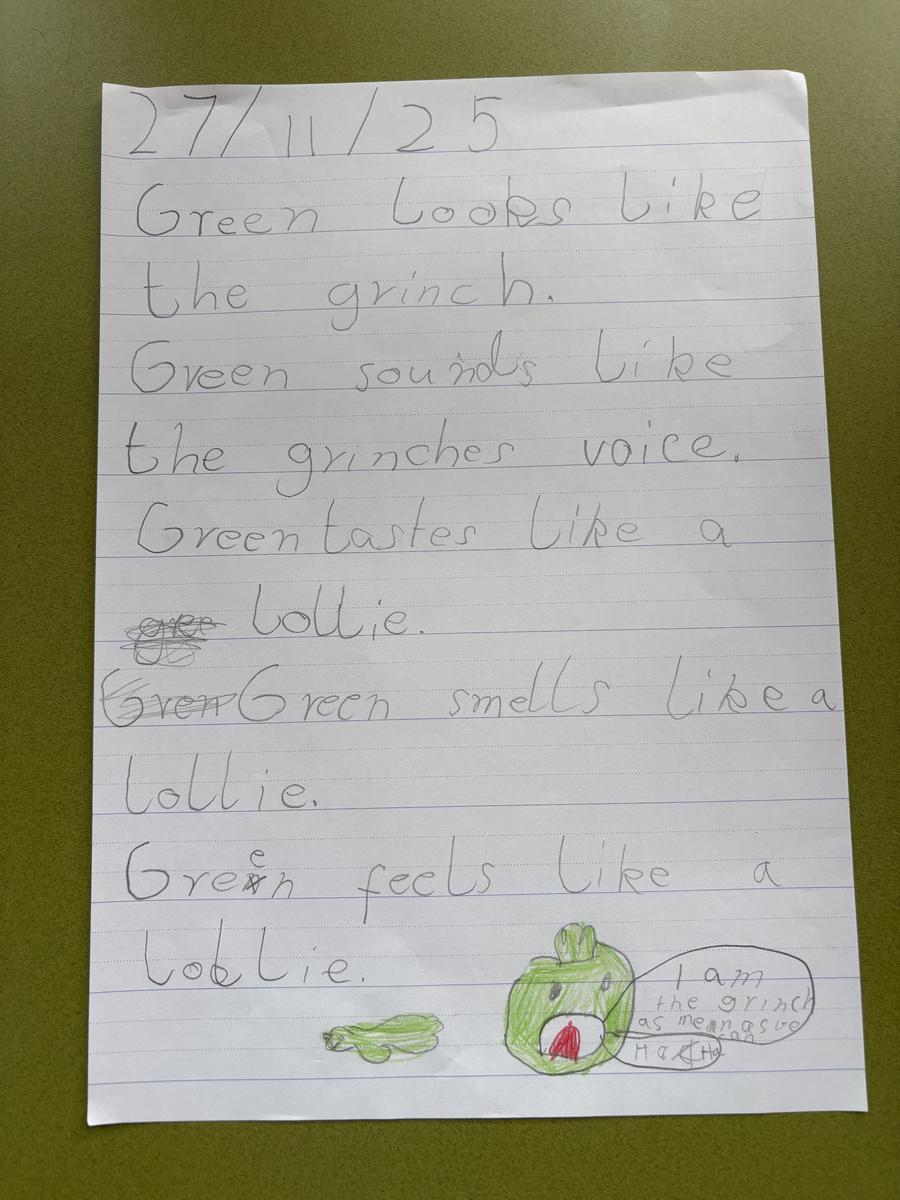 27/11/25
Green looks like
the grinch.
Green sounds like
the grinches voice.
Green tastes like a
lollie.
Green smells like a
lollie.
Green feels like a
lollie.
I am
the grinch
as mean as
can
Ha Ha